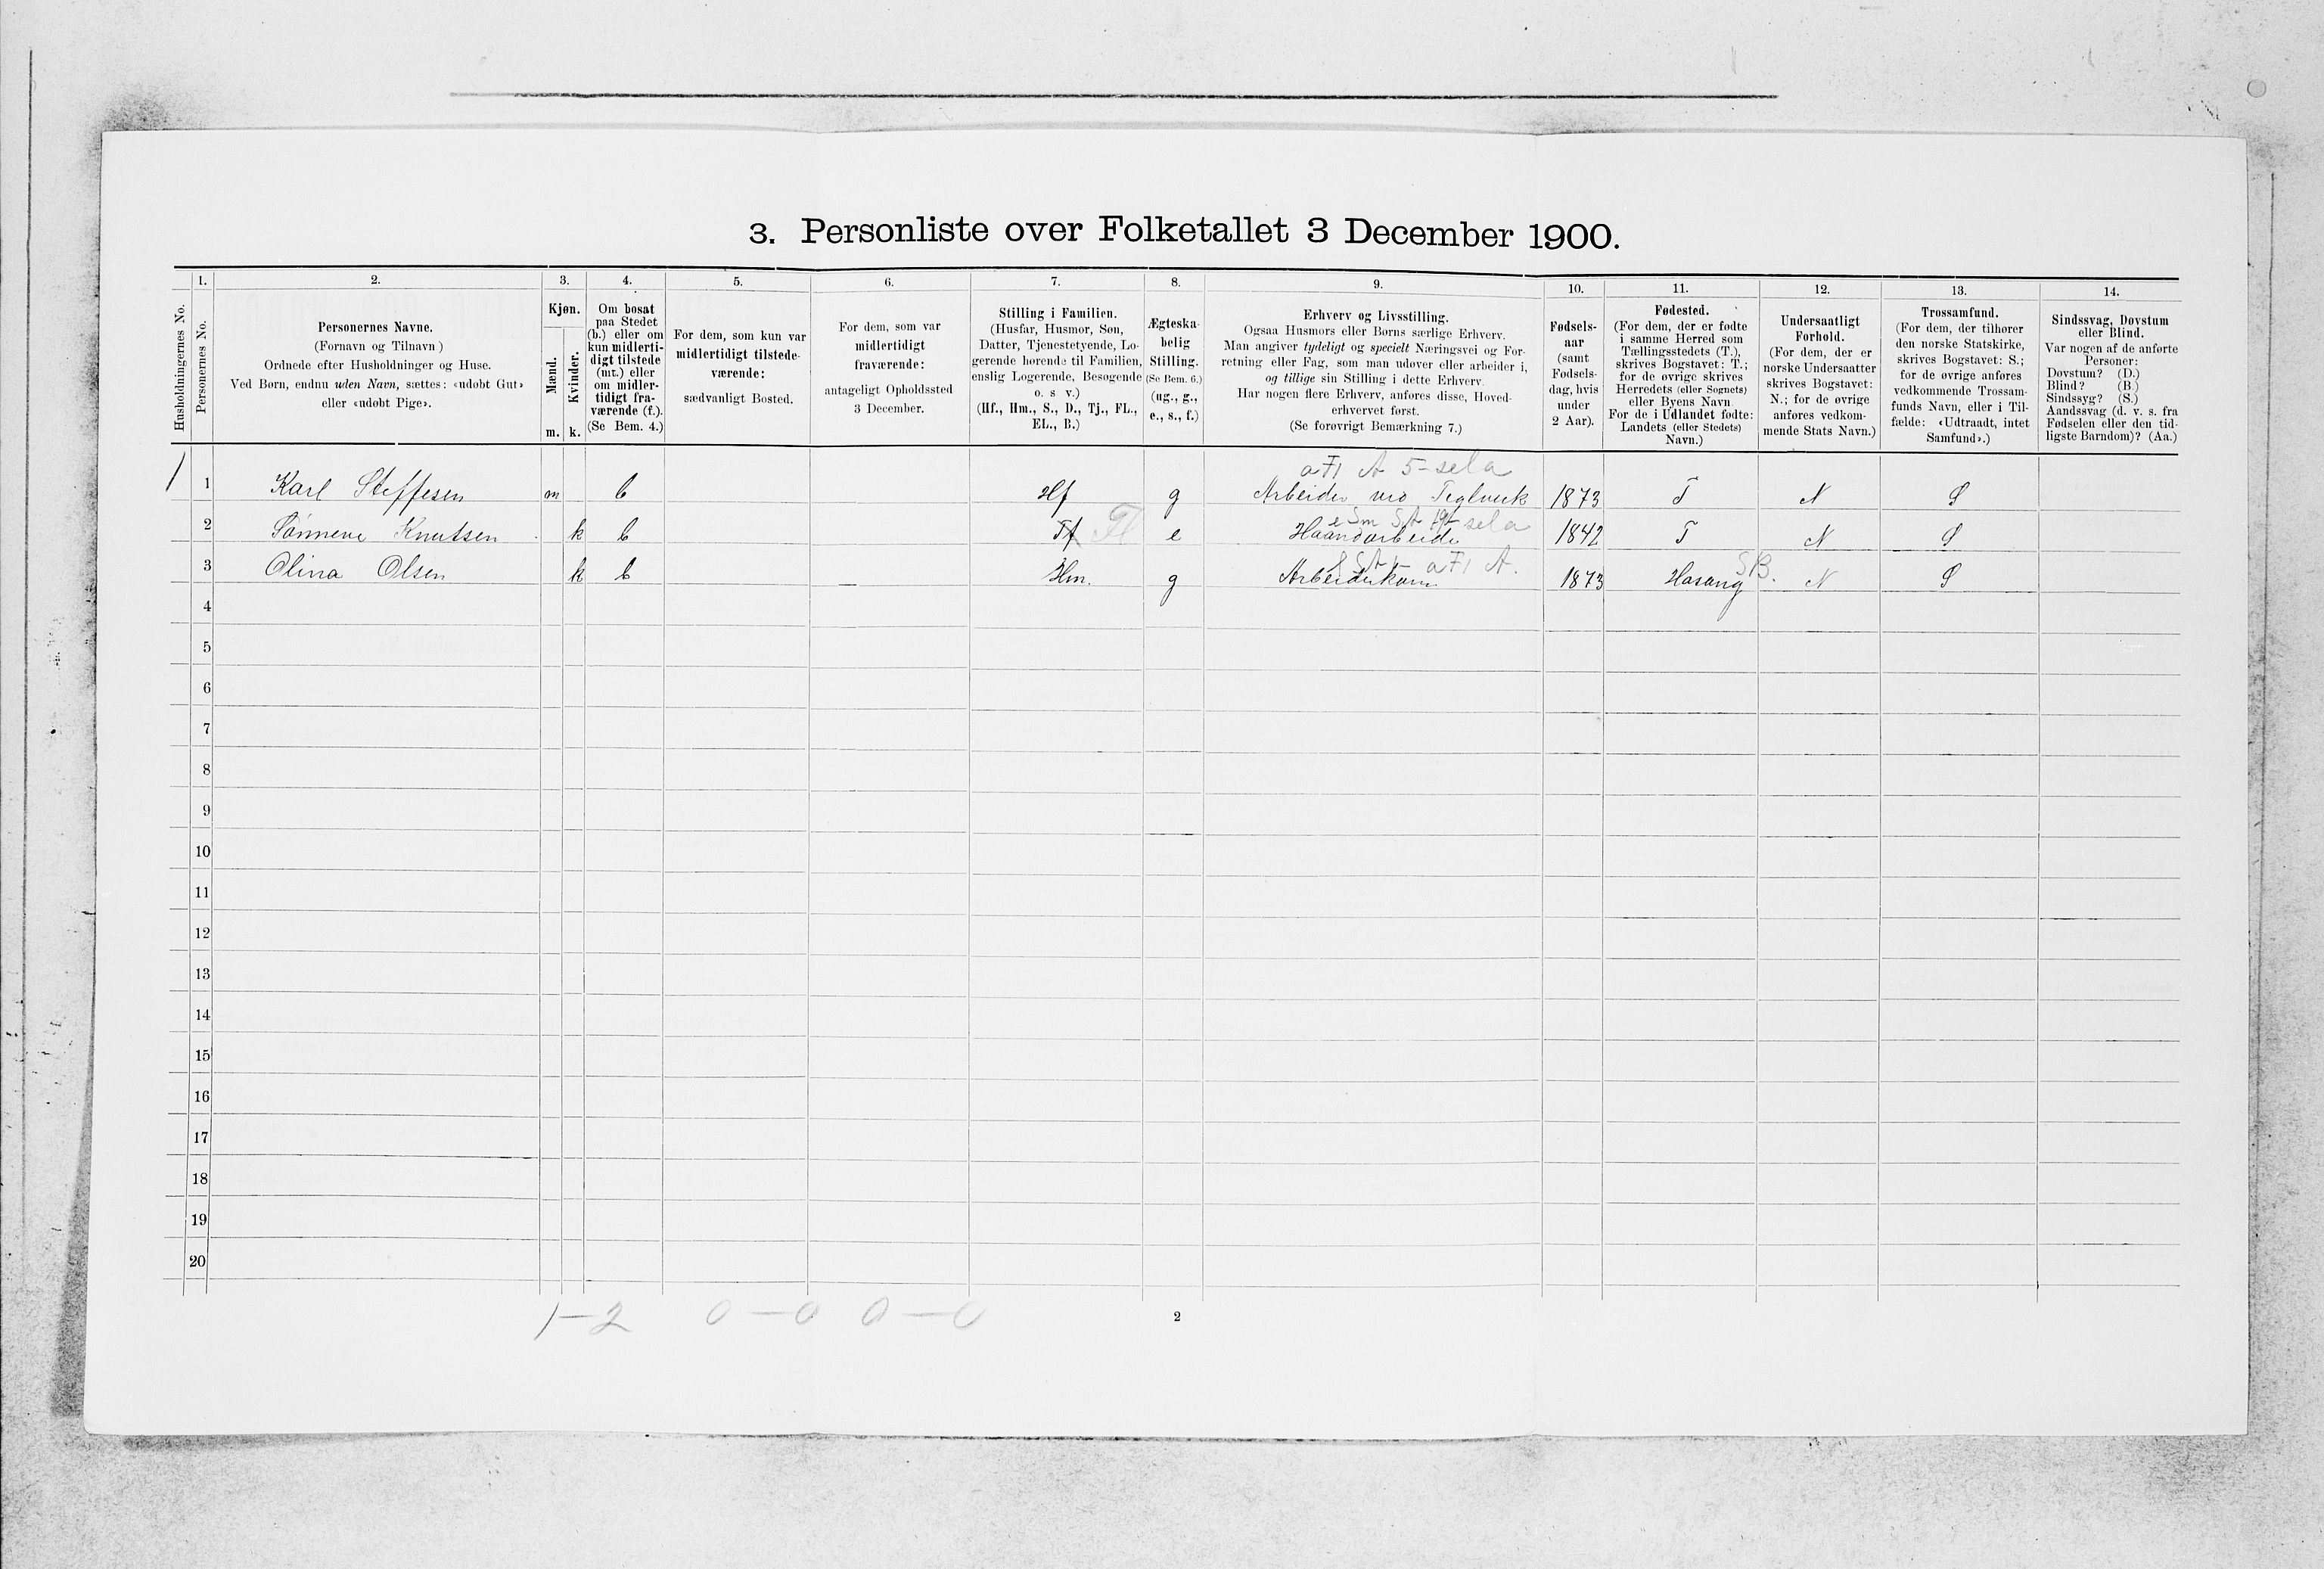 3. Personliste over Folketallet 3 December 1900.
1. 2. 3. 4. 5. 6. 7. 8. 9. 10. 11. 12. 13. 14.
Husholdningernes No.
Personernes No.
Personernes Navne.
(Fornavn og Tilnavn)
Ordnede efter Husholdninger og Huse.
Ved Børn, endnu uden Navn, sættes: «udøbt Gut»
eller «udøbt Pige».
Kjøn.
Mænd.
Kvinder.
m. k.
Om bosat
paa Stedet
(b.) eller om
kun midlerti-
digt tilstede
(mt.) eller
om midler-
tidigt fra-
værende (f.).
(Se Bem. 4.)
For dem, som kun var
midlertidigt tilstede-
værende:
sædvanligt Bosted.
For dem, som var
midlertidigt
fraværende:
antageligt Opholdssted
3 December.
Stilling i Familien.
(Husfar, Husmor, Søn,
Datter, Tjenestetyende, Lo-
gerende hørende til Familien,
enslig Logerende, Besøgende
o. s v.)
(Hf., Hm., S., D., Tj., FL.,
EL., B.)
Ægteska-
belig
Stilling.
(Se Bem. 6.)
(ug., g.,
e., s., f.)
Erhverv og Livsstilling.
Ogsaa Husmors eller Børns særlige Erhverv.
Man angiver tydeligt og specielt Næringsvei og For-
retning eller Fag, som man udøver eller arbeider i,
og tillige sin Stilling i dette Erhverv.
Har nogen flere Erhverv, anføres disse, Hoved-
erhvervet først.
(Se forøvrigt Bemærkning 7.)
Fødsels-
aar
(samt
Fødsels-
dag, hvis
under
2 Aar).
Fødested.
(For dem, der er fødte
i samme Herred som
Tællingsstedets (T.),
skrives Bogstavet: T.;
for de øvrige skrives
Herredets (eller Sognets)
eller Byens Navn
For de i Udlandet fødte:
Landets (eller Stedets)
Navn.)
Undersaatligt
Forhold.
(For dem, der er
norske Undersaatter
skrives Bogstavet:
N.; for de øvrige
anføres vedkom-
mende Stats Navn.)
Trossamfund.
(For dem, der tilhører
den norske Statskirke,
skrives Bogstavet: S.;
for de øvrige anføres
vedkommende Trossam-
funds Navn, eller i Til-
fælde: «Udtraadt, intet
Samfund».)
Sindssvag, Døvstum
eller Blind.
Var nogen af de anførte
Personer:
Døvstum? (D.)
Blind? (B.)
Sindssyg? (S.)
Aandssvag (d. v. s. fra
Fødselen eller den tid-
ligste Barndom)? (Aa.)
1 1 Karl Steffesen m b Hf g Arbeider ved Teglverk 1873 T N S
2 Sønneve Knutsen k b Fl e Haandarbeide 1842 T N S
3 Olina Olsen k b Hm. g 1873 Hosang N S
4
5
6
7
8
9
10
11
12
13
14
15
16
17
18
19
20
1-2 0-0 0-0
2